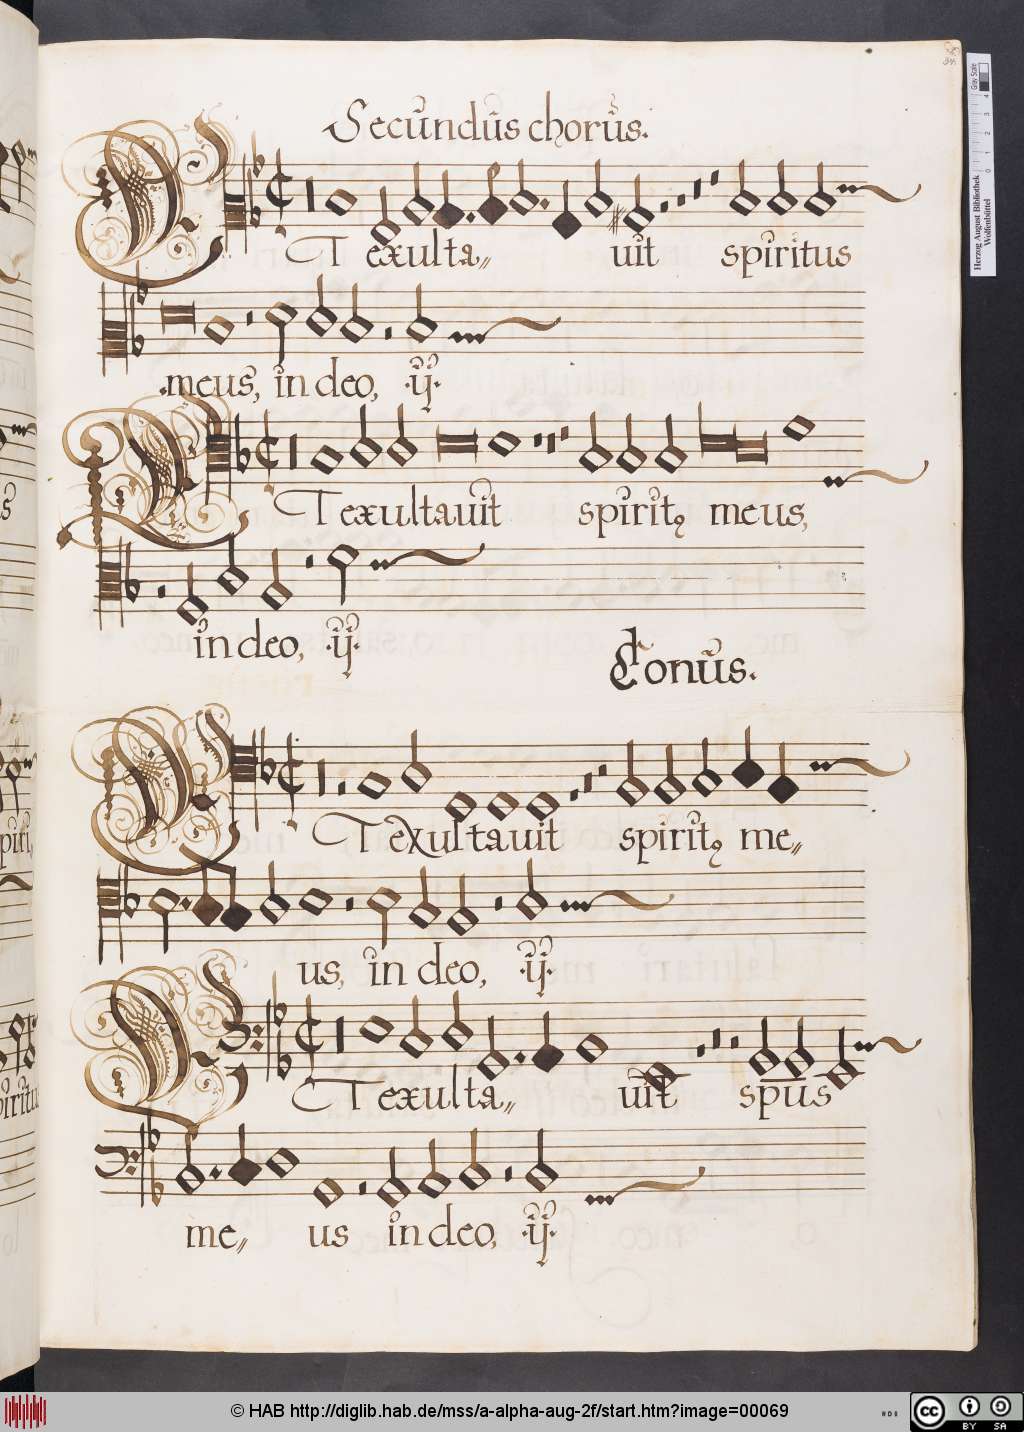 Secundus chorus.
T exulta〃 uit spiritus
meus, in deo, ·ij·
T exultauit spiritꝯ meus,
in deo, ·ij·
Conus.
T exultauit spiritꝯ me〃
us, in deo, ·ij·
T exulta〃 uit spus
me〃 us in deo, ·ij·
Gray Scale
0 1 2 3 4
Herzog August Bibliothek
Wolfenbüttel
© HAB http://diglib.hab.de/mss/a-alpha-aug-2f/start.htm?image=00069
cc BY SA